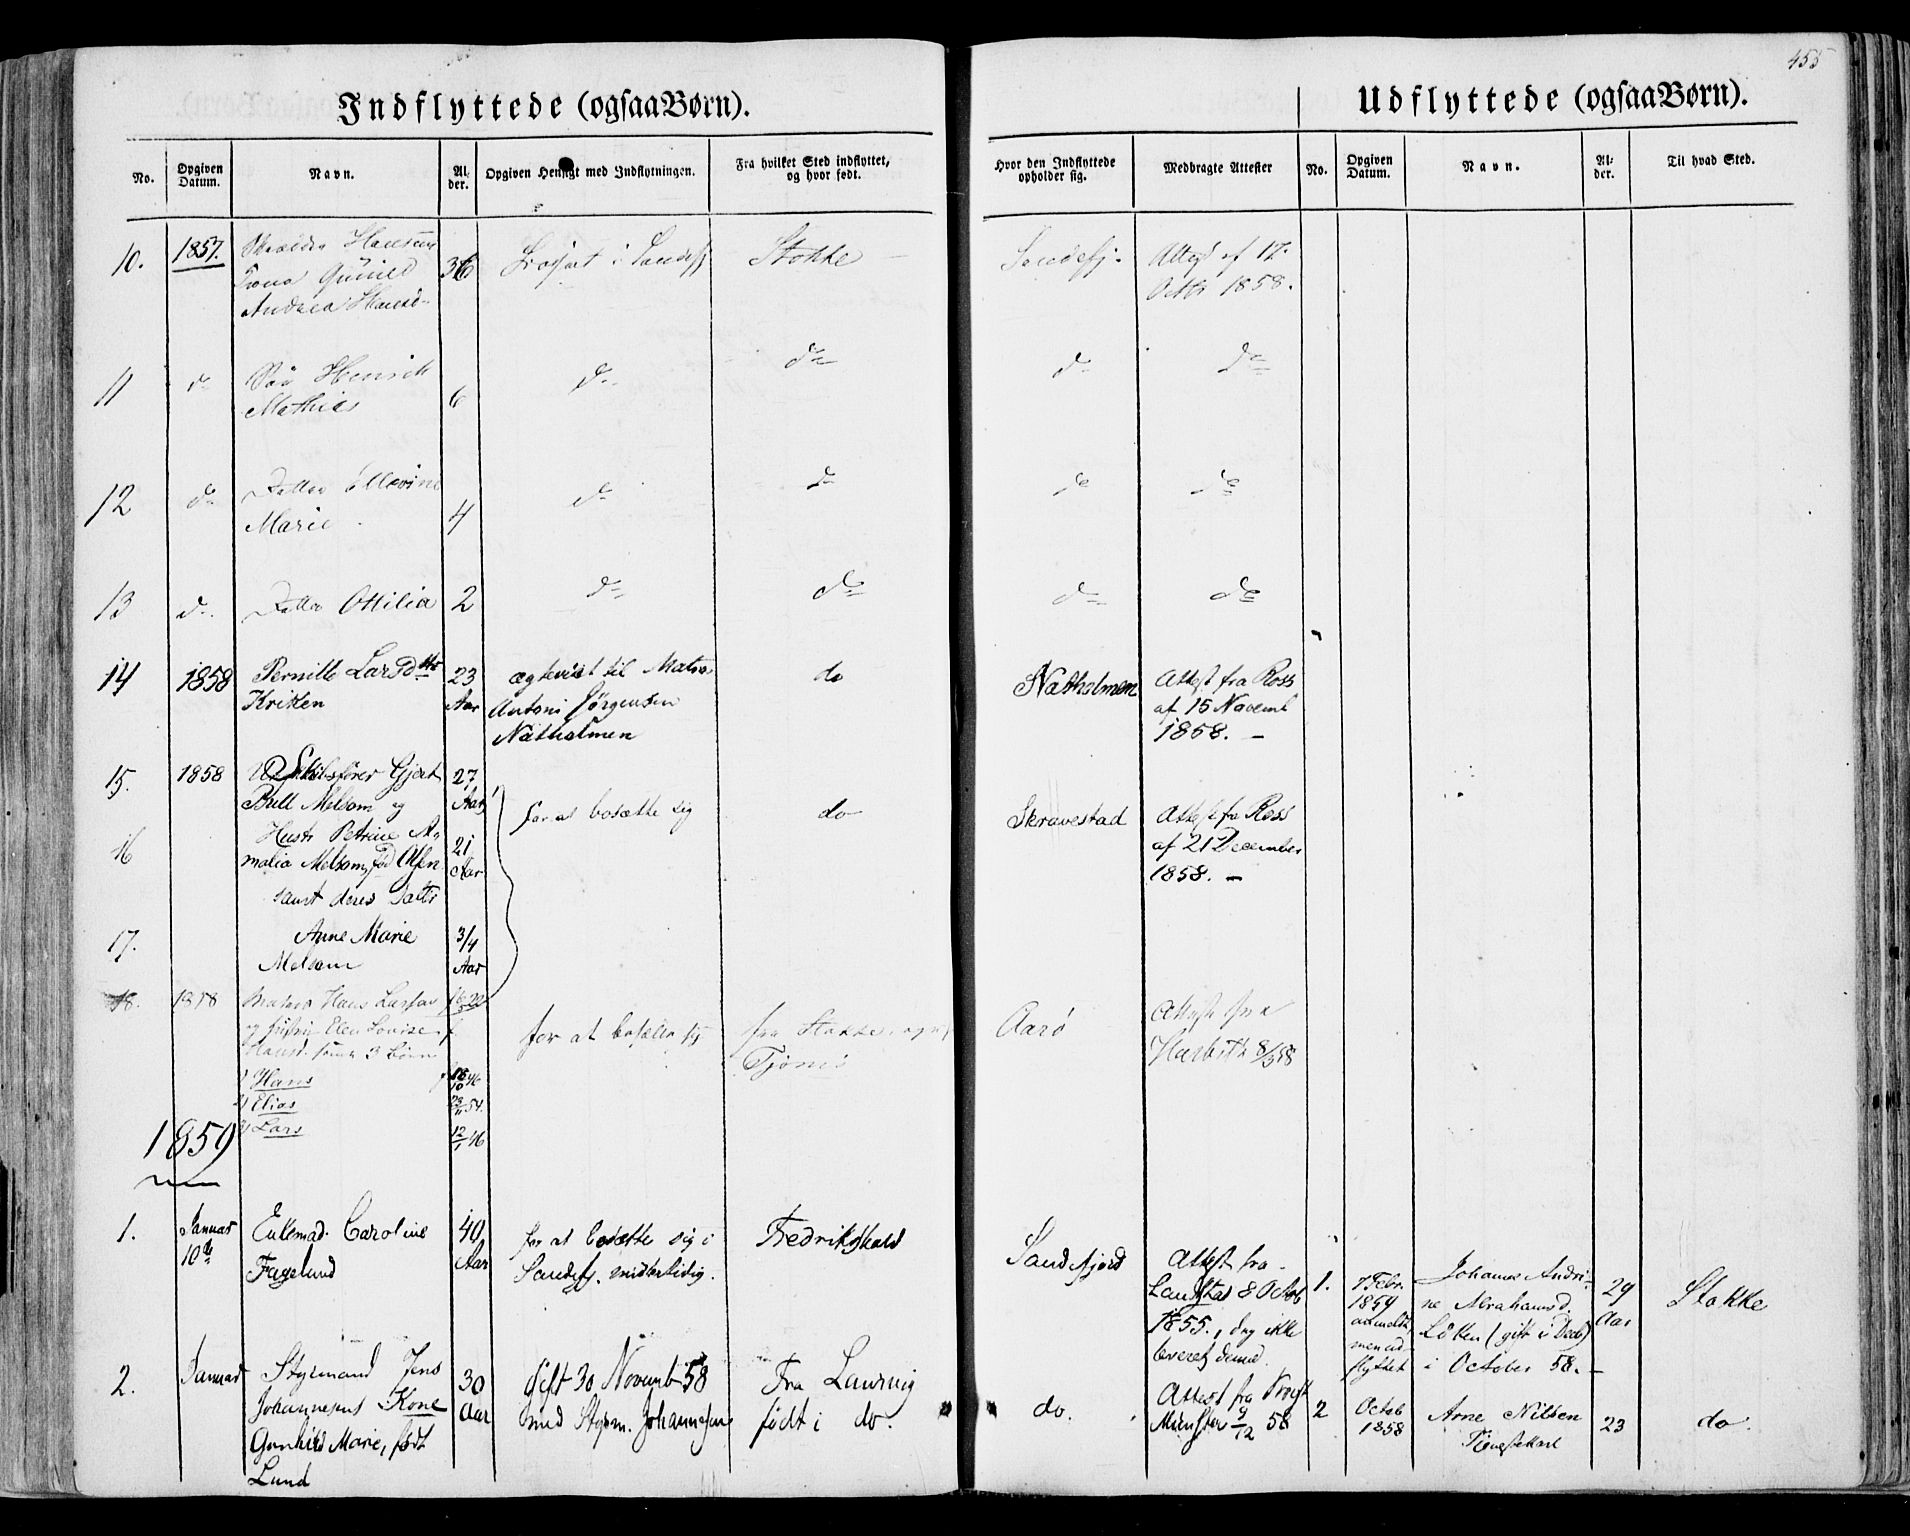 455
Indflyttede (ogsaa Børn).
Udflyttede (ogsaa Børn).
No.
Opgiven Datum.
Navn.
Al-
der.
Opgiven Hensigt med Indflytningen.
Fra hvilket Sted indflyttet,
og hvor født.
Hvor den Indflyttede
opholder sig.
Medbragte Attester
No.
Opgiven Datum.
Navn.
Al-
der.
Til hvad Sted.
10.
1857.
Hansen
Andrea Hansd
36
Stokke
Sandefj.
Attest af 17.
Octbr 1858.
11
do
Søn Henrik
Mathias
6
do
do
do
do
12
do
Datter
Marie
4
do
do
do
do
13
do
Datter Ottilia
2
do
do
do
do
14
1858
Pernille Larsdttr
23
Aar
ægteviet til Matros
Antoni Jørgensen
Natholmen
do
Natholmen
Attest fra Ross
af 15 Novemb
1858. –
15.
1858
Skibsfører Gjert
Bull Melsom og
27
Aar
for at bosætte sig
do
Skravestad
Attest fra Ross
af 21 December
1858. –
16
Hustr Petrine A-
malia Melsom, fød Olsen
samt deres Datter
21
Aar
17.
Anne Marie
Melsom
3/4
Aar
18.
1858
Matros Hans Larsen
og Hustru Elen Lovise
Hansd. samt 3 Børn
1) Hans
2) Elias
3) Lars
46
54.
12/1 46
for at bosætte sig
fra Stokke, og
Tjømø
Aarø
Attest fra
8/3 58
1859
1.
Januar
10de
Enkemad. Caroline
Fagelund
40
Aar
for at bosætte sig i
Sandefj. midlertidig.
Fredrikshald
Sandefjord
Attest fra
Landstad 8 Octob
1855., dog ikke
leveret denne.
1.
7 Febr.
1859
anmeldt,
men ud-
flyttet
Johanne Andri-
ne Abrahamsd.
Løken (gift i Decb)
i October 58. –
29
Aar
Stokke
2.
Januar
Styrmand Jens
Johannesens Kone
Gunhild Marie, født
Lund
30
Aar
Gift 30 Novemb 58
med Styrm. Johannesen
Fra Laurvig
født i do.
do.
Attest fra Provst
Münster 9/12 58
2
Octob
1858
Arne Nilsen
Tjenestekarl
23
do.